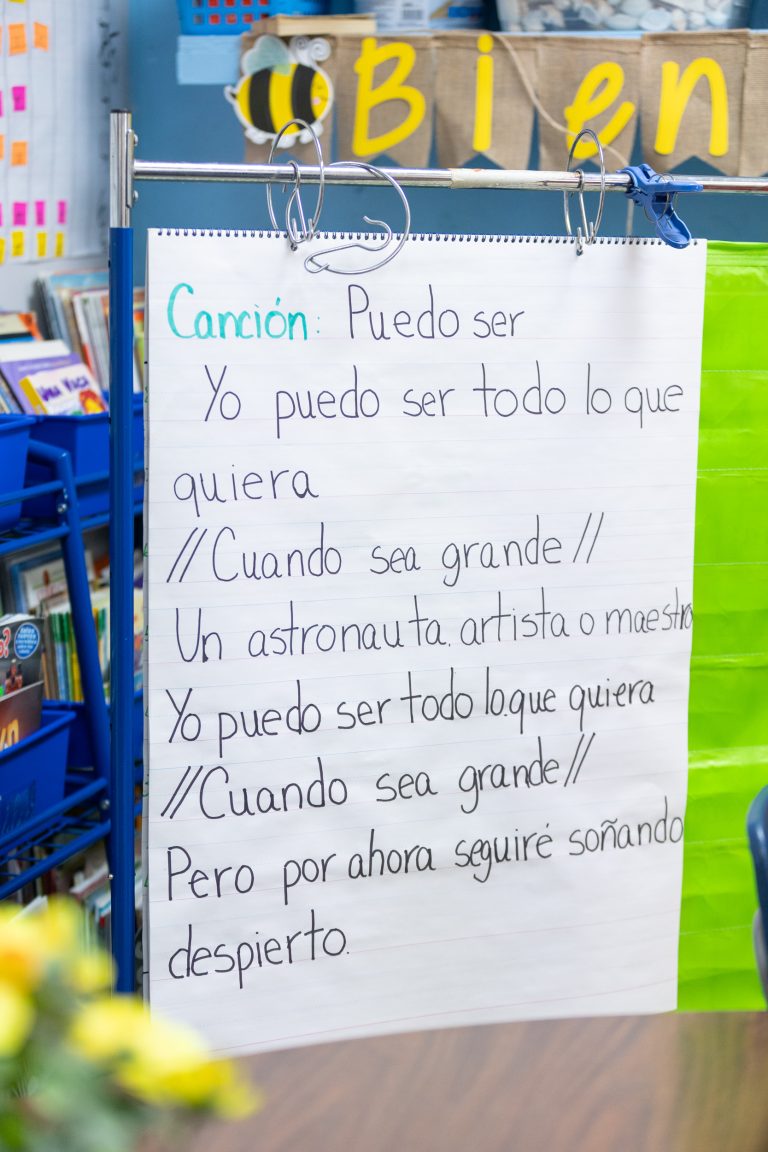 Bien
Canción: Puedo ser
Yo puedo ser todo lo que
quiera
//Cuando sea grande//
Un astronauta. artista o maestro
Yo puedo ser todo lo.que quiera
//Cuando sea grande//
Pero por ahora seguiré soñando
despierto.
Una Vaca